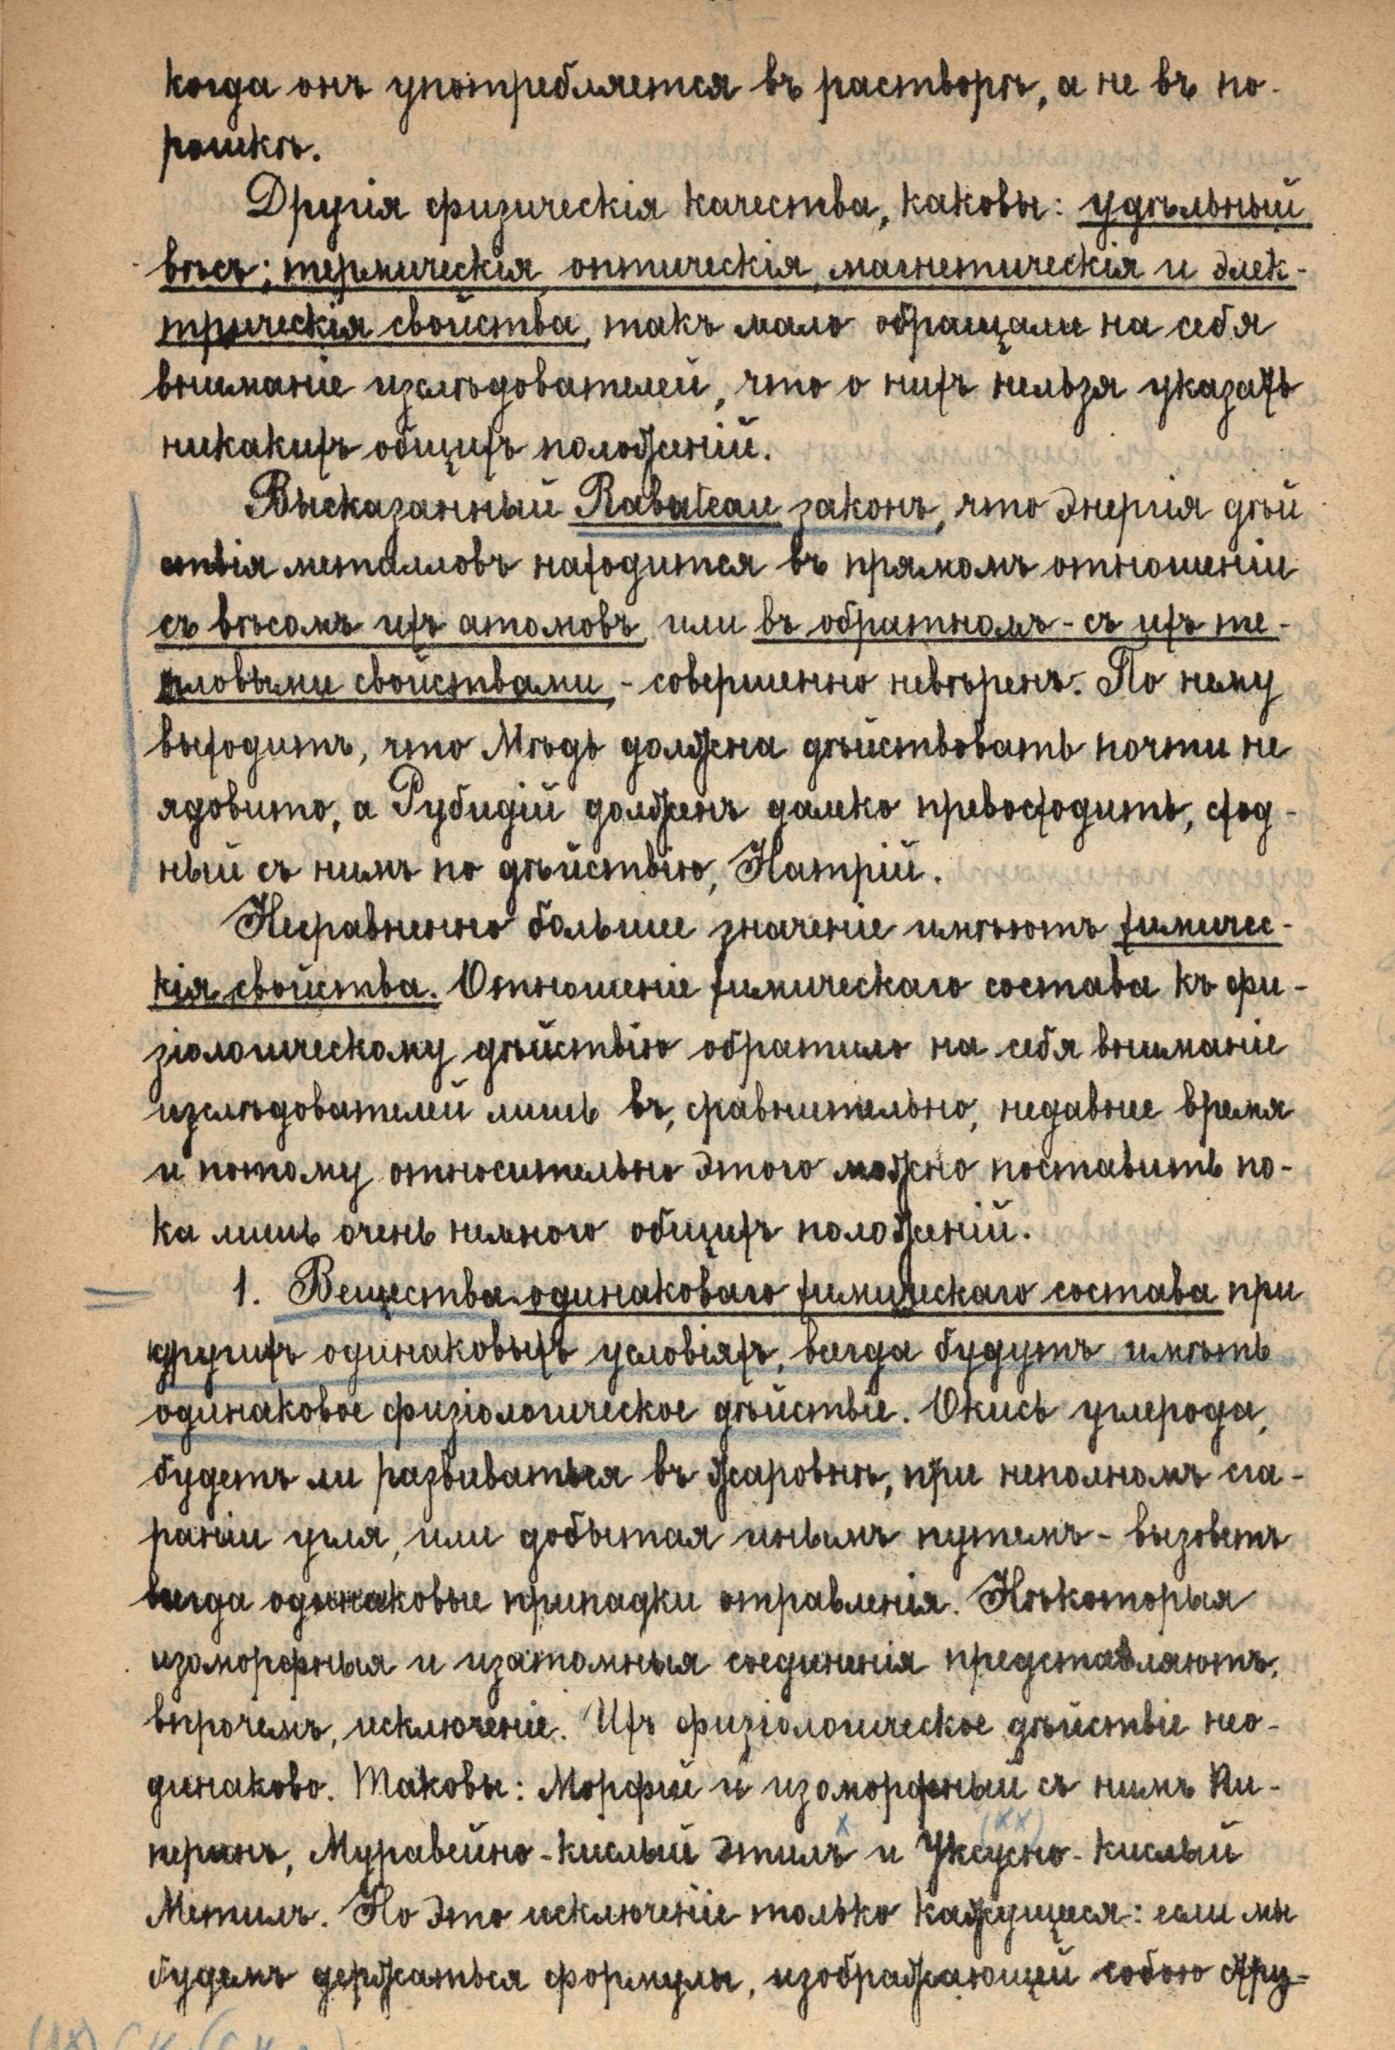 когда онъ употребляется въ растворѣ, а не въ по-
рошкѣ.
Другія физическія качества, каковы: удѣльный
вѣсъ; термическія, оптическія, магнетическія и элек-
трическія свойства, такъ мало обращали на себя
вниманіе изслѣдователей, что о нихъ нельзя указать
никакихъ общихъ положеній.
Высказанный Rabuteau законъ, что энергія дѣй
ствія металловъ находится въ прямомъ отношеніи
съ вѣсомъ ихъ атомовъ, или въ обратномъ - съ ихъ те-
пловыми свойствами, - совершенно невѣренъ. По нему
выходитъ, что Мѣдь должна дѣйствовать почти не
ядовито, а Рубидій долженъ далеко превосходить, сход-
ный съ нимъ по дѣйствію, Натрій.
Несравненно большее значеніе имѣютъ химичес-
кія свойства. Отношеніе химическаго состава къ фи-
зіологическому дѣйствію обратило на себя вниманіе
изслѣдователей лишь въ, сравнительно, недавнее время
и потому относительно этого можно поставить по-
ка лишь очень немного общихъ положеній.
1. Вещества одинаковаго химическаго состава при
другихъ одинаковыхъ условіяхъ, всегда будутъ имѣть
одинаковое физіологическое дѣйствіе. Окись углерода,
будетъ ли развиваться въ жаровнѣ, при неполномъ сга-
раніи угля, или добытая инымъ путемъ - вызоветъ
всегда одинаковые припадки отравленія. Нѣкоторыя
изоморфныя и изатомныя соединенія представляютъ,
впрочемъ, исключеніе. Ихъ физіологическое дѣйствіе нео-
динаково. Таковы: Морфій и изоморфный съ нимъ Пи-
перинъ, Муравейно-кислый Этилъ x и Уксусно-кислый (xx)
Метилъ. Но это исключеніе только кажущееся: если мы
будемъ держаться формулы, изображающей собою гру-